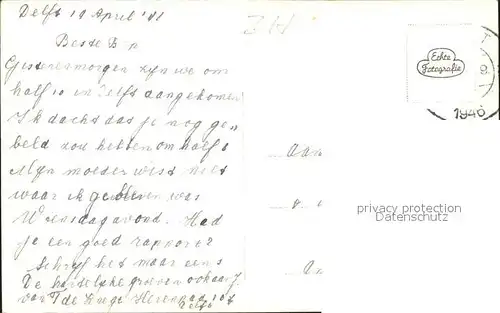 Delft 19 April '41
Beste B n
Gisterenmorgen zijn we om
half 10 in Delft aangekomen
Ik dacht dat je nog ge„
beld zou hebben om half 1
Mijn moeder wist niet
waar ik gebleven was
Woensdagavond. Had
je een goed rapport?
Schrijf het maar eens
De hartelijke groeten ook aan
van T de
Delft
Echte
Fotografie
1946
privacy protection
Datenschutz